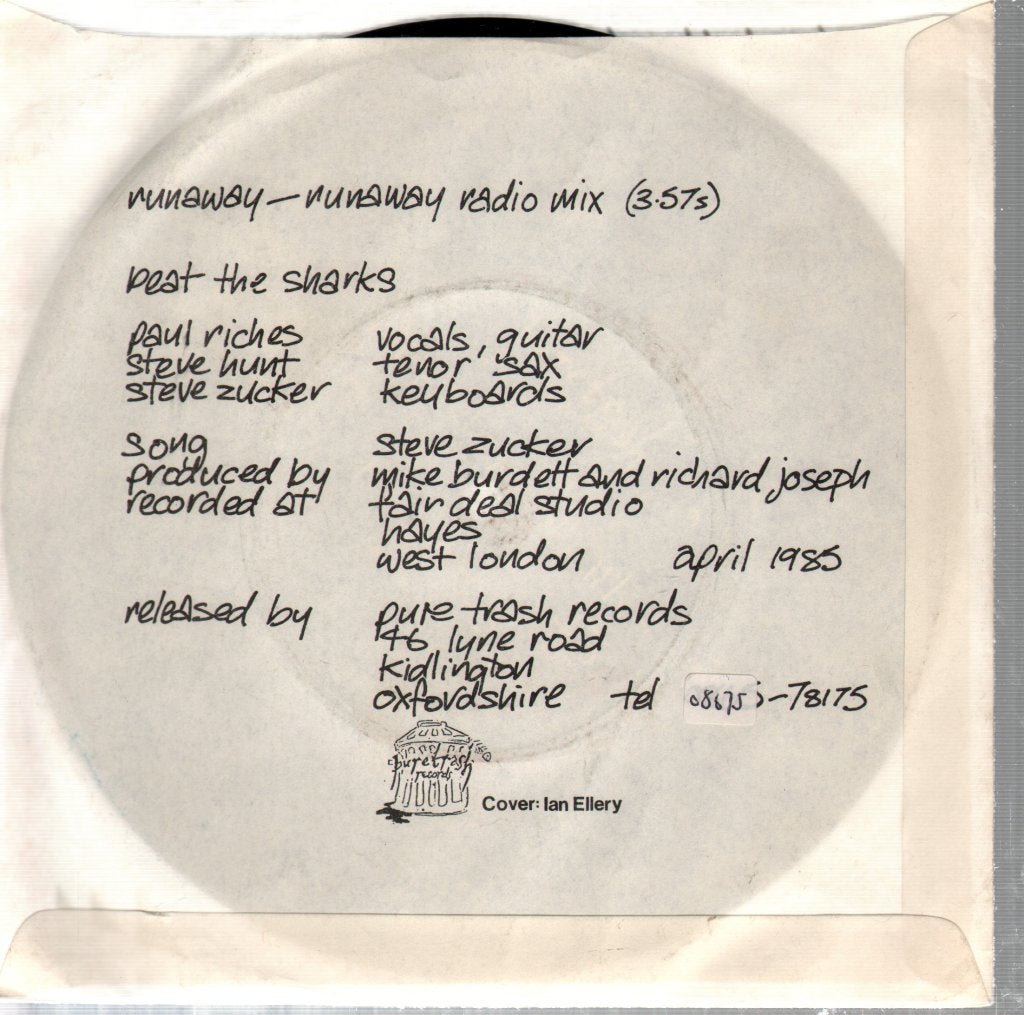 runaway – runaway radio mix (3.57s)
beat the sharks
paul riches vocals, guitar
steve hunt tenor sax
steve zucker keyboards
song steve zucker
produced by mike burdett and richard joseph
recorded at fair deal studio
hayes
west london april 1985
released by pure trash records
46 lyne road
kidlington
oxfordshire tel 08675 -78175
pure trash
records
Cover: Ian Ellery